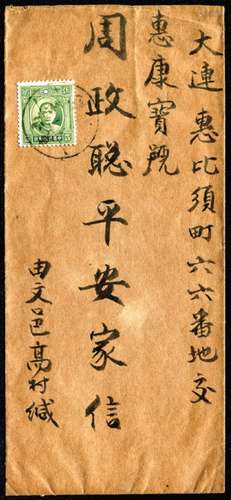 大連惠比須町六六番地交
惠康寳號
周政聡平安家信
由文邑高村缄